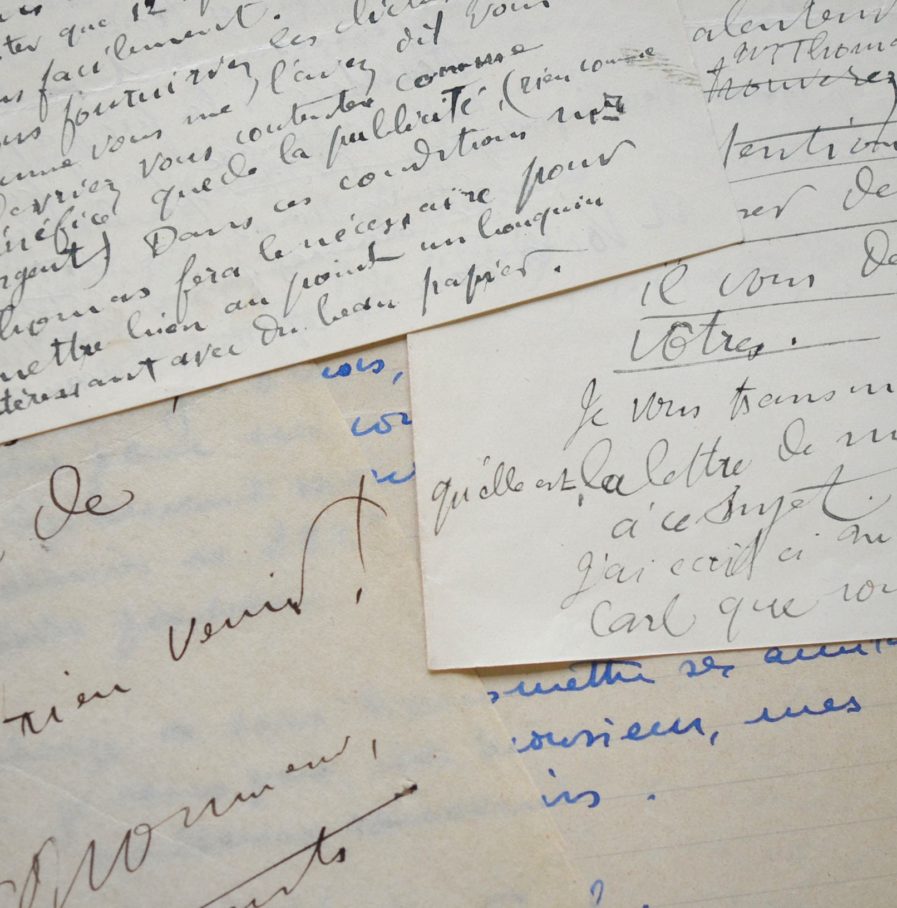 que 12
facilement.
fournirez les clichés
comme vous me l'avez dit vous
devriez vous contenter comme
bénéfice que de la publicité, (rien comme
argent) Dans ces conditions Mr
Thomas fera le nécessaire pour
mettre bien au point un bouquin
intéressant avec du beau papier.
alentour
Mr Thomas
trouverez
tention
de
il vous de
votres.
Je vous transm
qu'elle est, la lettre de m
à ce sujet.
J'ai ecrit ci
Carl que vou
de
rien venir!
ois,
con
smettre ses amit
onsieur, mes
ins.